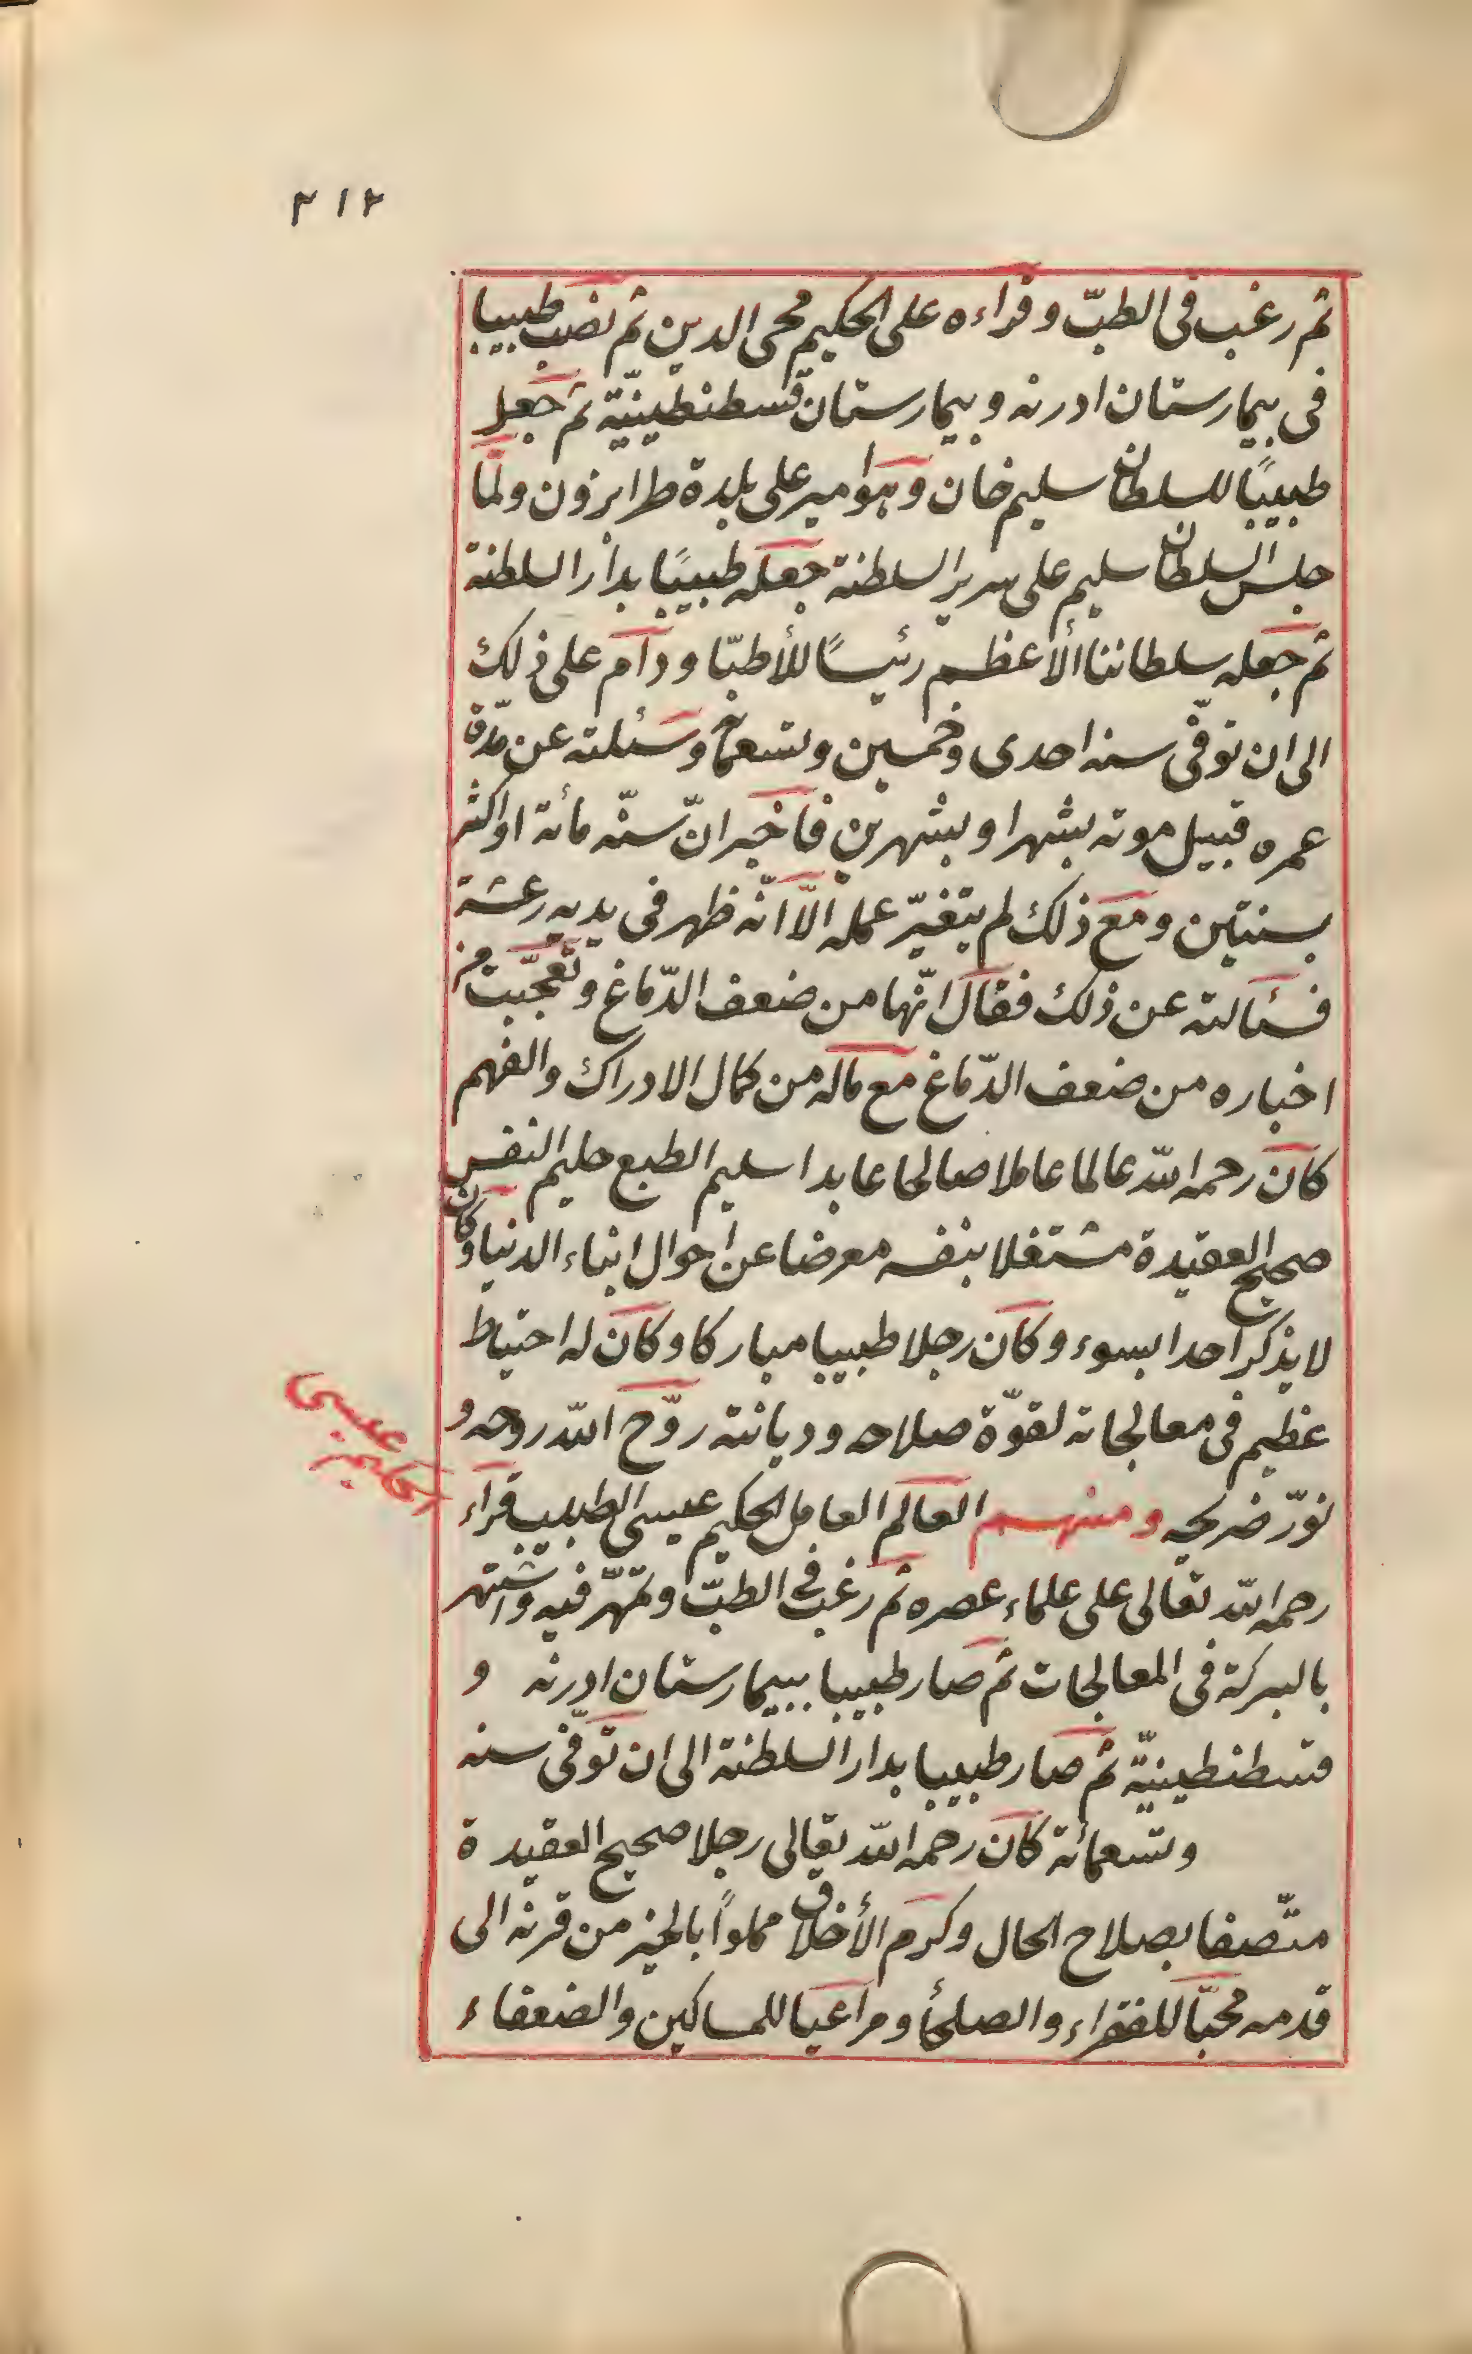 ٢١٢
ثم رغب فى الطبّ وقراءه على الحكيم محى الدين ثم نصب طبيبا
فى بيمارستان ادرنه و بيمارستان قسطنطينيّة ثم جعل
طبيبًا للسلطان سليم خان وهو امير على بلدة طرابزون ولمّا
جلس السلطان سليم على سرير السلطنة جعله طبيبًا بدار السلطنة
ثم جعله سلطاننا الأعظم رئيسًا للأطبّا ودام على ذلك
الى ان توفّى سنه احدى وخمسين وتسعمائة وسئلته عن مدّة
عمره قبيل موته بشهر او بشهرين فاخبر انّ سنّه مائة او اكثر
بسنتين ومع ذلك لم يتغيّر عمله الّا انّه ظهر فى يديه رعشة
فسئالته عن ذلك فقال انّها من ضعف الدّماغ وتعجّبت من
اخباره من ضعف الدّماغ مع ماله من كمال الادراك والفهم
كان رحمه الله عالما عاملا صالحا عابدا سليم الطبع حليم النفس
صحيح العقيدة مشتغلا بنفسه معرضا عن احوال ابناء الدنيا وكان
لا يذكر احدا بسوء وكان رجلا طبيبا مباركا وكان له احتياط
عظيم فى معالجاته لقوّة صلاحه وديانته روّح الله روحه و
نوّر ضريحه ومنهم العالم العامل الحكيم عيسى الطبيب قراء
الحكيم عيسى
رحمه الله تعالى على علماء عصره ثم رغب فى الطبّ وتمهّر فيه واشتهر
بالبركة فى المعالجات ثم صار طبيبا ببيمارستان ادرنه و
قسطنطينيّة ثم صار طبيبا بدار السلطنة الى ان توفّى سنه
وتسعمائة كان رحمه الله تعالى رجلا صحيح العقيدة
متّصفا بصلاح الحال وكرم الأخلاق مملواً بالخير من قرنه الى
قدمه محبّا للفقراء والصلحأ ومراعيا للمساكين والضعفاء